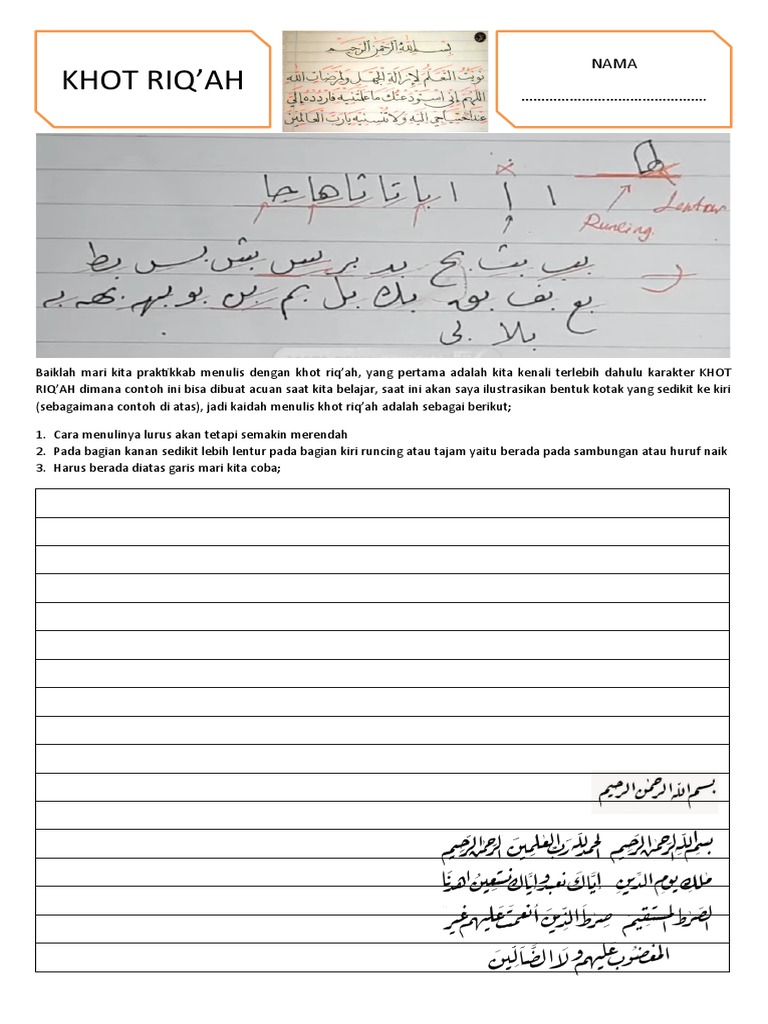 KHOT RIQ’AH
بسم الله الرحمن الرحيم
نويت التعلم لإزالة الجهل ولمرضات الله
اللهم إني استودعتك ما علمتنيه فاردده إلي
عند احتياجي إليه ولا تنسنيه يا رب العالمين
NAMA
.............................................
ها
ا ا ا با تا ثا ها حا
Runcing.
Lentur
بب بث بح بد بر بس بش بس بط
بع بف بق بك بل بم بن بو به بهه بي
بلا لي
Baiklah mari kita praktikkab menulis dengan khot riq’ah, yang pertama adalah kita kenali terlebih dahulu karakter KHOT
RIQ’AH dimana contoh ini bisa dibuat acuan saat kita belajar, saat ini akan saya ilustrasikan bentuk kotak yang sedikit ke kiri
(sebagaimana contoh di atas), jadi kaidah menulis khot riq’ah adalah sebagai berikut;
1. Cara menulinya lurus akan tetapi semakin merendah
2. Pada bagian kanan sedikit lebih lentur pada bagian kiri runcing atau tajam yaitu berada pada sambungan atau huruf naik
3. Harus berada diatas garis mari kita coba;
بسم الله الرحمن الرحيم
بسم الله الرحمن الرحيم الحمد لله رب العلمين الرحمن الرحيم
ملك يوم الدين إياك نعبد وإياك نستعين اهدنا
الصرط المستقيم صرط الذين أنعمت عليهم غير
المغضوب عليهم ولا الضالين